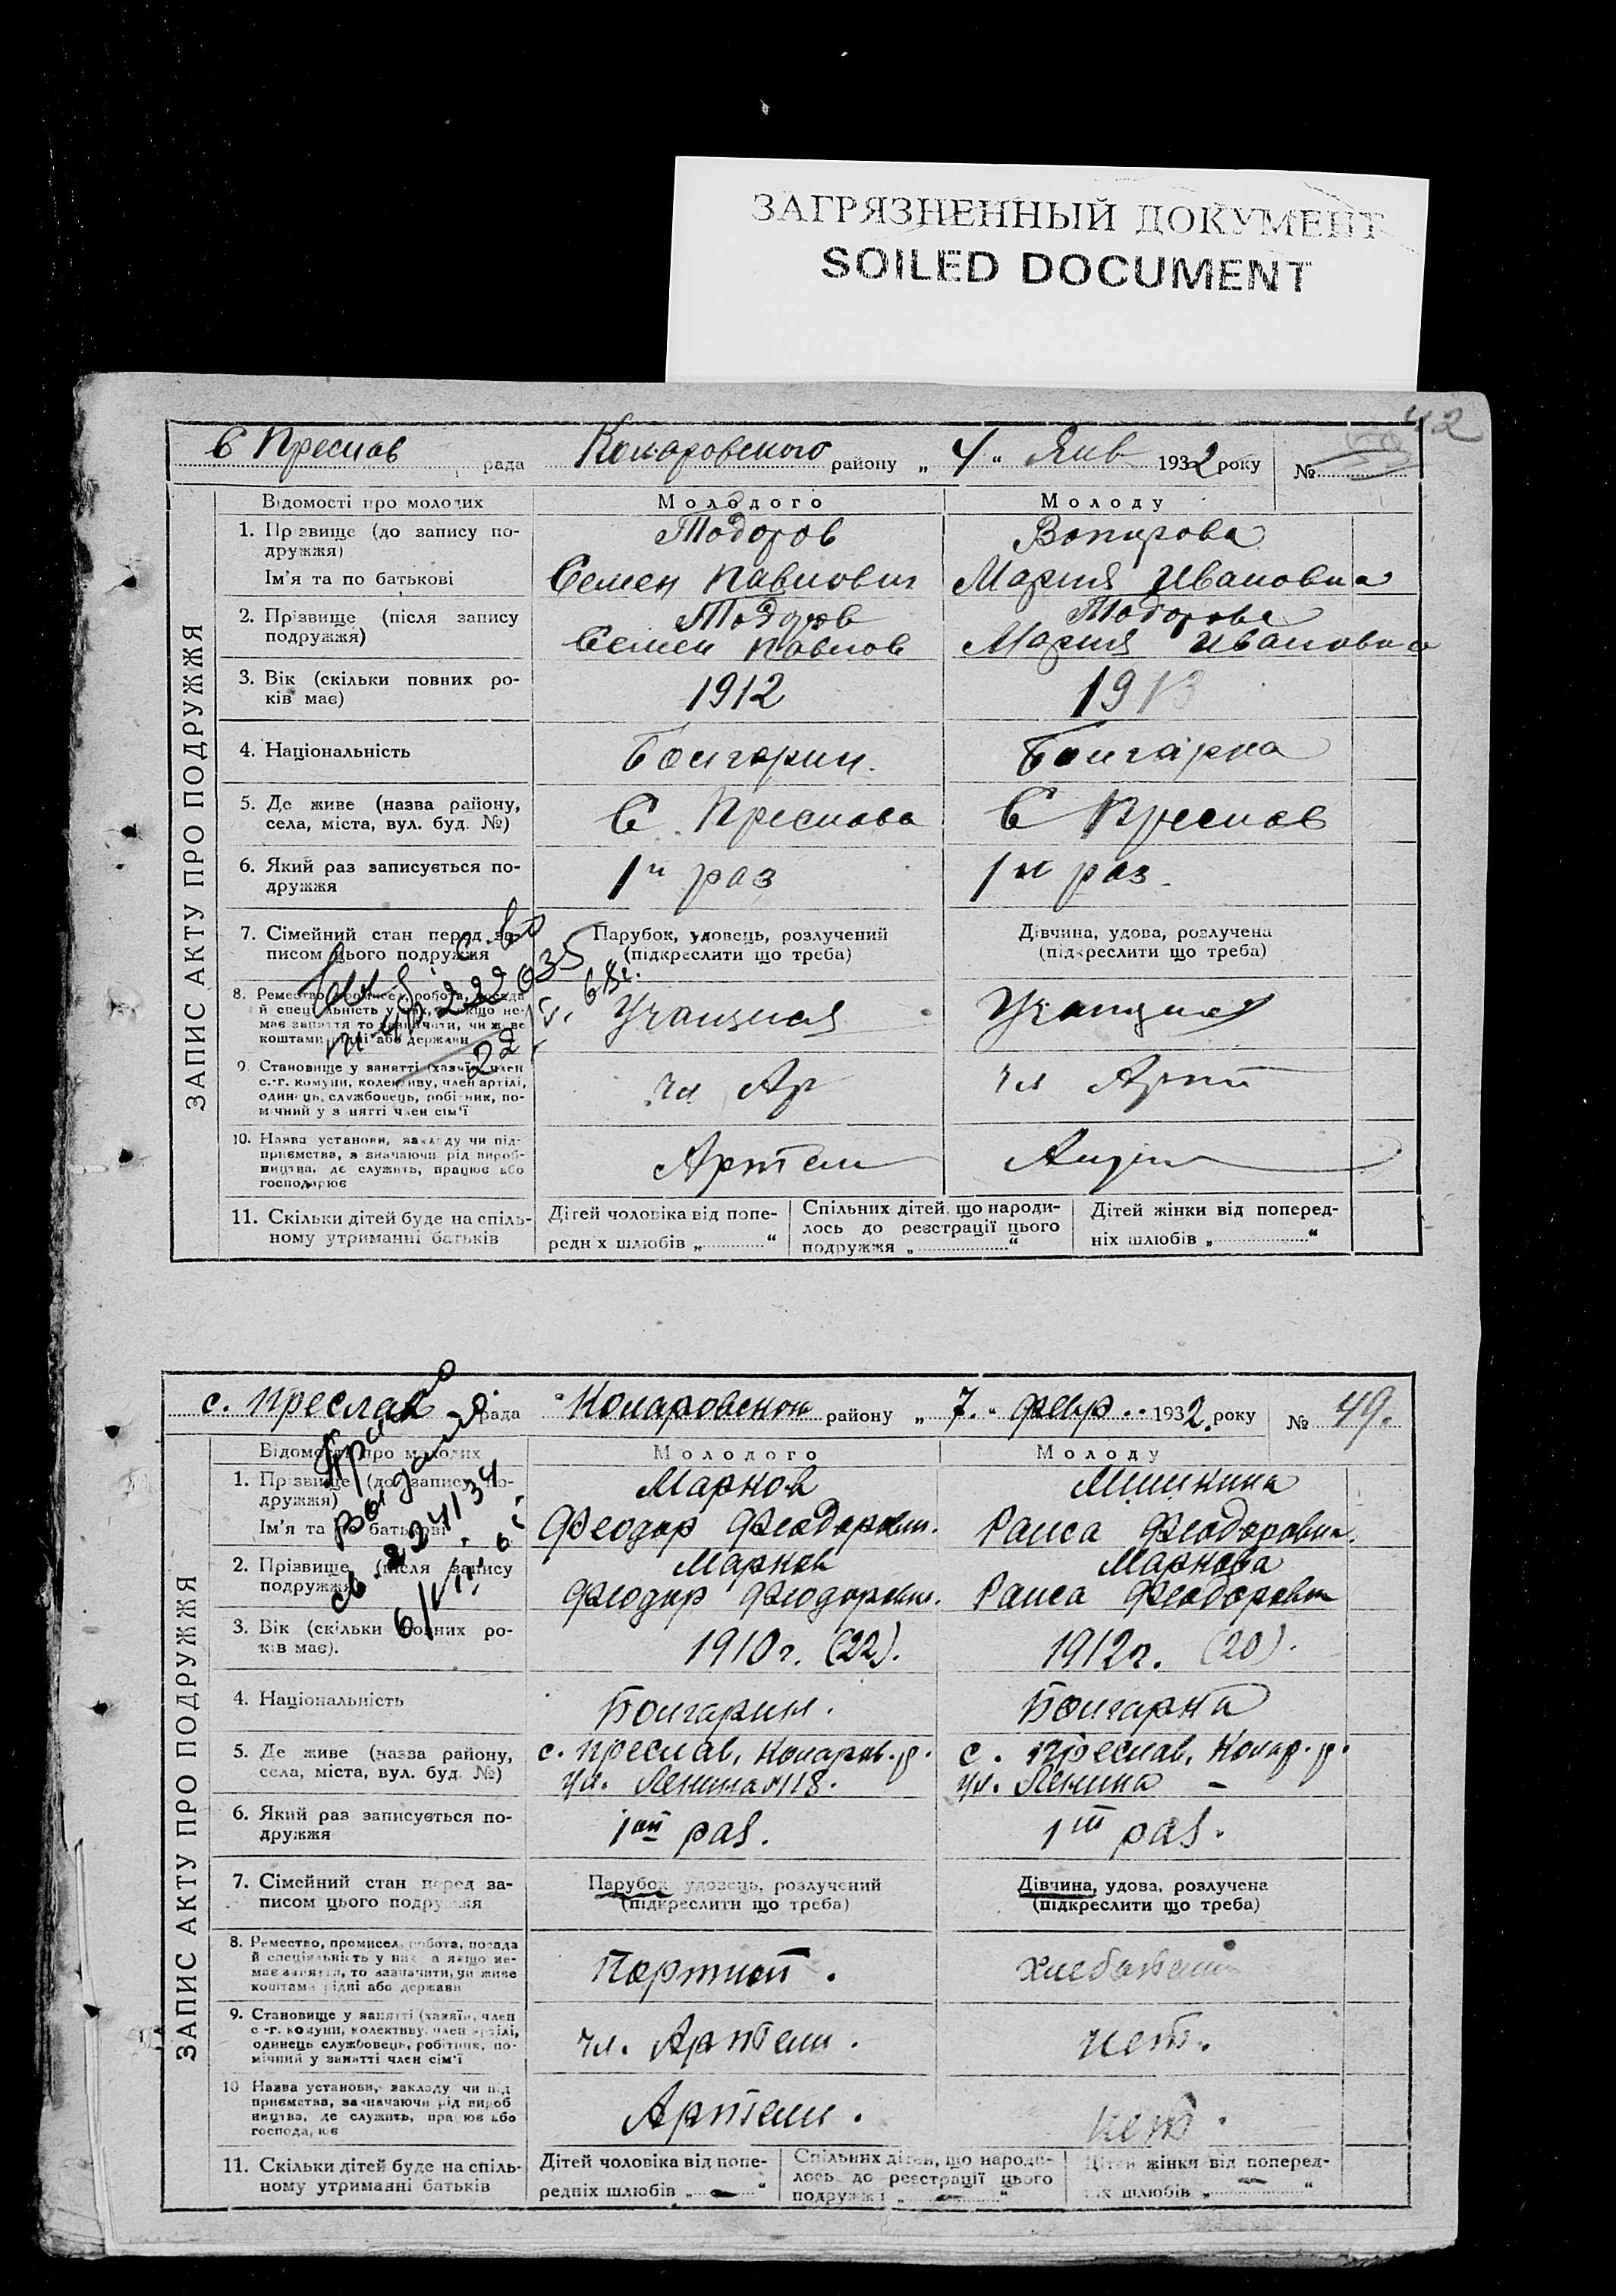 ЗАГРЯЗНЕННЫЙ ДОКУМЕНТ
SOILED DOCUMENT
42
С Преслав рада Коларовского району „ 4 “ Янв 1932 року №
ЗАПИС АКТУ ПРО ПОДРУЖЖЯ
Відомості про молодих Молодого Молоду
1. Прізвище (до запису по-
дружжя) Тодоров
Ім'я та по батькові Семен Павлович Мария Ивановна
2. Прізвище (після запису Тодоров Тодорова
подружжя) Семен Павлов Мария Ивановна
3. Вік (скільки повних ро-
ків має) 1912 1913
4. Національність Болгарин. Болгарка
5. Де живе (назва району,
села, міста, вул. буд. №) С. Преслава С Преслав
6. Який раз записується по-
дружжя 1й раз 1й раз
7. Сімейний стан перед за-
писом цього подружжя
Парубок, удовець, розлучений
(підкреслити що треба)
Дівчина, удова, розлучена
(підкреслити що треба)
8. Ремество, промисел, робота, посада
й спеціальність у них, а якщо не-
має заняття то зазначити, чи живе
коштами рідні або держави
Учащийся
9. Становище у занятті (хазяїн, член
с.-г. комуни, колективу, член артілі,
одинець, службовець, робітник, по-
мічний у занятті член сім'ї
чл Ар чл Арт
10. Назва установи, закладу чи під-
приємства, зазначаючи рід вироб-
ництва, де служить, працює або
господарює
Артели
11. Скільки дітей буде на спіль-
ному утриманні батьків
Дітей чоловіка від попе-
редніх шлюбів „ “
Спільних дітей, що народи-
лось до реєстрації цього
подружжя „ “
Дітей жінки від поперед-
ніх шлюбів „ “
с. Преслав рада Коларовском району „ 7. “ Февр. 1932. року № 49.
ЗАПИС АКТУ ПРО ПОДРУЖЖЯ
Відомості про молодих Молодого Молоду
1. Прізвище (до запису по-
дружжя) Марков Мишкина
Ім'я та по батькові Феодор Феодорович. Раиса Феодоровна.
2. Прізвище (після запису Марков Маркова
подружжя) Феодор Феодорович. Раиса Феодоровна
3. Вік (скільки повних ро-
ків має). 1910 г. (22). 1912 г. (20).
4. Національність Болгарин. Болгарка
5. Де живе (назва району, с. Преслав, Коларов. р. с. Преслав, Колар. р.
села, міста, вул. буд. №) ул. Ленина №118. ул. Ленина –
6. Який раз записується по-
дружжя 1ый раз. 1й раз.
7. Сімейний стан перед за-
писом цього подружжя
Парубок, удовець, розлучений
(підкреслити що треба)
Дівчина, удова, розлучена
(підкреслити що треба)
8. Ремество, промисел, робота, посада
й спеціяльність у них, а якщо не-
має заняття, то зазначити, чи живе
коштами рідні або держави
Портной.
9. Становище у занятті (хазяїн, член
с-г. комуни, колективу, член артілі,
одинець службовець, робітник, по-
мічний у занятті член сім'ї
чл. Артели. нет.
10 Назва установи, закладу чи під
приємства, зазначаючи рід вироб
ництва, де служить, працює або
господарює
Артели. нет.
11. Скільки дітей буде на спіль-
ному утриманні батьків
Дітей чоловіка від попе-
редніх шлюбів „ – “
Спільних дітей, що народи-
лось до реєстрації цього
подружжя „ – “
Дітей жінки від поперед-
ніх шлюбів „ – “